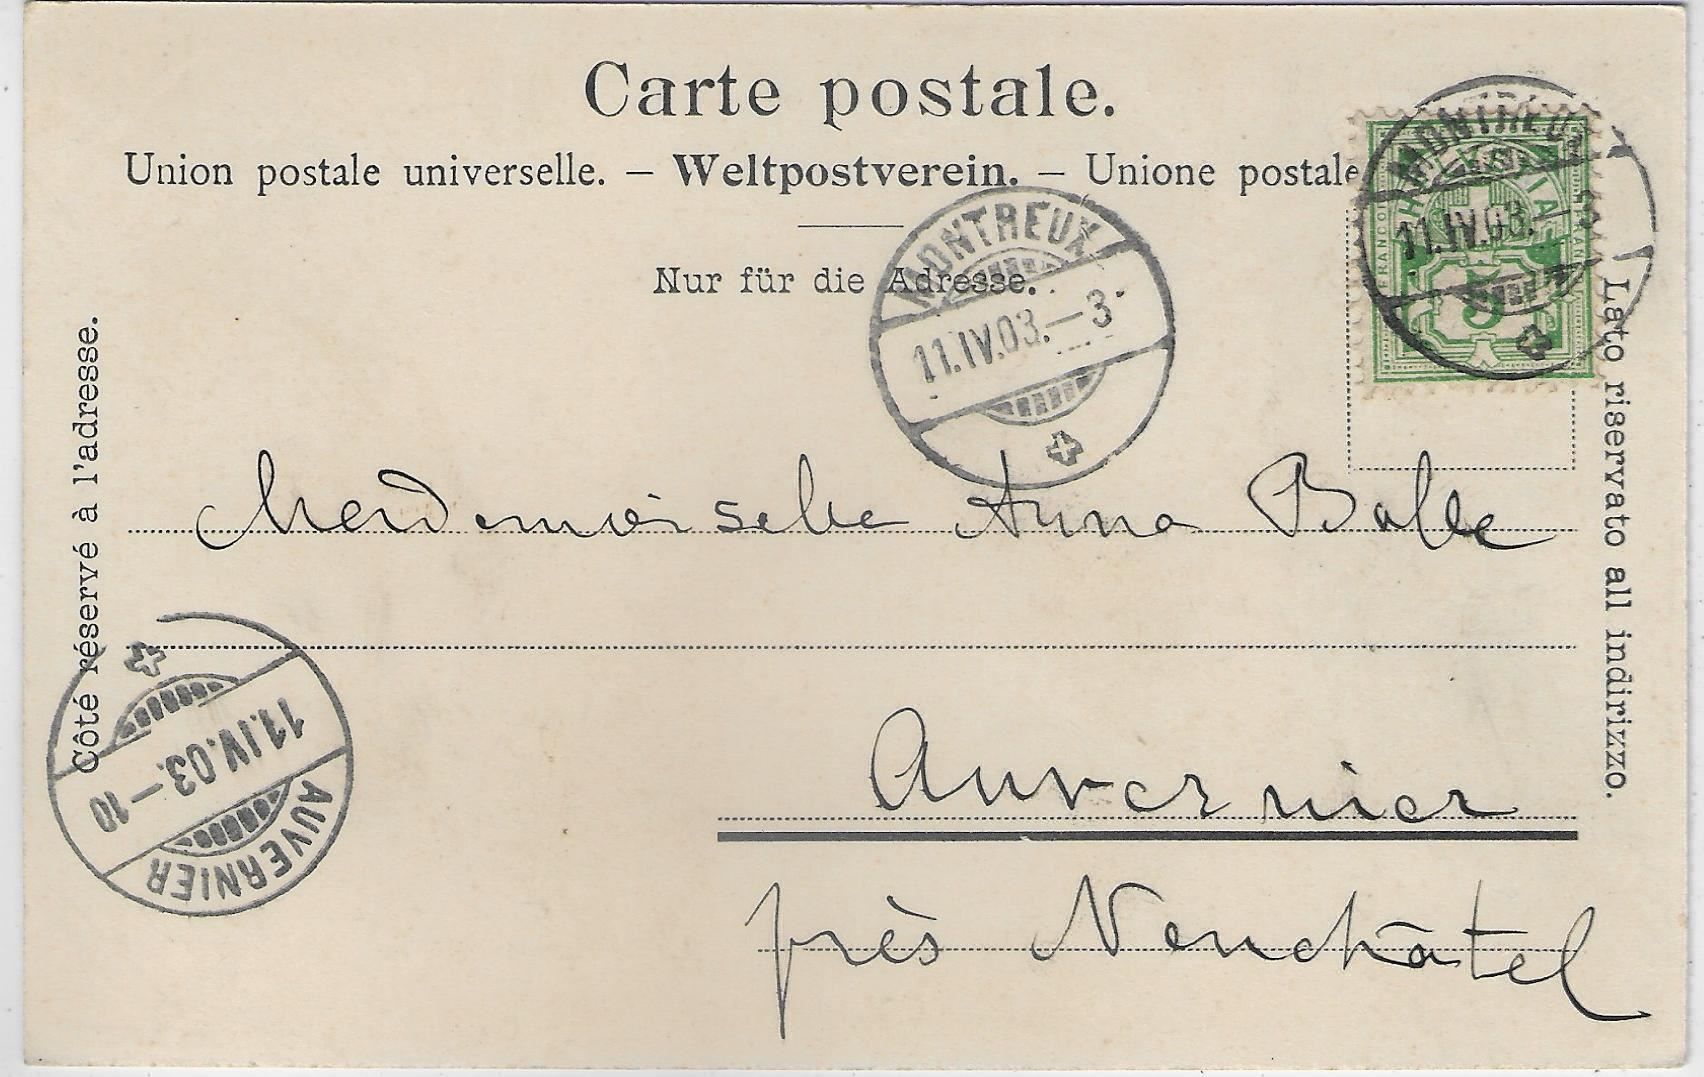 Carte postale.
Union postale universelle. – Weltpostverein. – Unione postale
Nur für die Adresse.
Côté réservé à l'adresse.
Lato riservato all indirizzo.
MONTREUX
11.IV.03.–3
HELVETIA
FRANCO
5
MONTREUX
11.IV.03.–3
Mademoiselle Anna Balle
Auvernier
près Neuchâtel
AUVERNIER
11.IV.03.–10